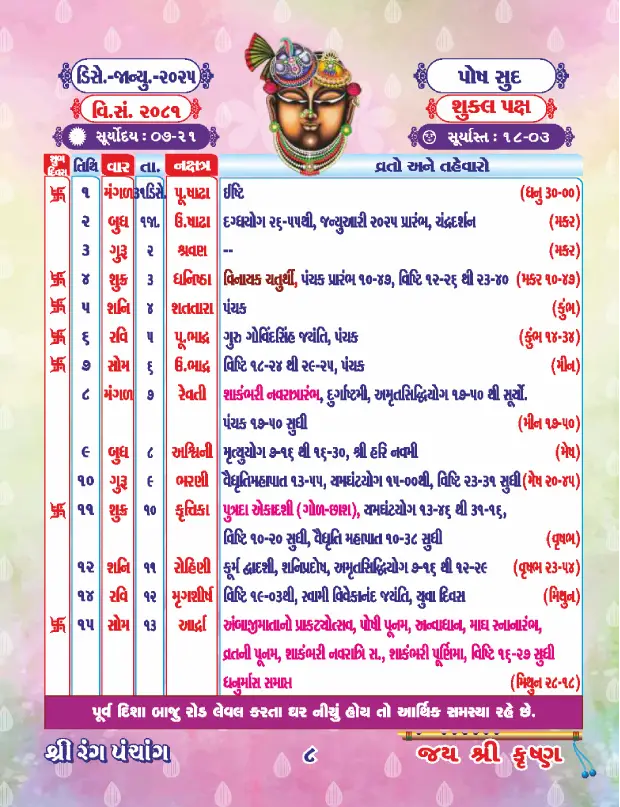 ડિસે.-જાન્યુ.-૨૦૨૫
પોષ સુદ
વિ.સં. ૨૦૮૧
શુકલ પક્ષ
સૂર્યોદય : ૦૭-૨૧
સૂર્યાસ્ત : ૧૮-૦૩
શુભ દિવસ તિથિ વાર તા. નક્ષત્ર વ્રતો અને તહેવારો
卐 ૧ મંગળ ૩૧ડિસે. પૂ.ષાઢા ઈષ્ટિ (ધનુ ૩૦-૦૦)
૨ બુધ ૧જા. ઉ.ષાઢા દગ્ધયોગ ૨૬-૫૫થી, જન્યુઆરી ૨૦૨૫ પ્રારંભ, ચંદ્રદર્શન (મકર)
૩ ગુરૂ ૨ શ્રવણ -- (મકર)
卐 ૪ શુક્ર ૩ ધનિષ્ઠા વિનાયક ચતુર્થી, પંચક પ્રારંભ ૧૦-૪૭, વિષ્ટિ ૧૨-૨૬ થી ૨૩-૪૦ (મકર ૧૦-૪૭)
卐 ૫ શનિ ૪ શતતારા પંચક (કુંભ)
卐 ૬ રવિ ૫ પૂ.ભાદ્ર ગુરુ ગોવિંદસિંહ જયંતિ, પંચક (કુંભ ૧૪-૩૪)
卐 ૭ સોમ ૬ ઉ.ભાદ્ર વિષ્ટિ ૧૮-૨૪ થી ૨૯-૨૫, પંચક (મીન)
૮ મંગળ ૭ રેવતી શાકંભરી નવરાત્રારંભ, દુર્ગાષ્ટમી, અમૃતસિદ્ધિયોગ ૧૭-૫૦ થી સૂર્યો.
પંચક ૧૭-૫૦ સુધી (મીન ૧૭-૫૦)
૯ બુધ ૮ અશ્વિની મૃત્યુયોગ ૭-૧૬ થી ૧૬-૩૦, શ્રી હરિ નવમી (મેષ)
૧૦ ગુરૂ ૯ ભરણી વૈધૃતિમહાપાત ૧૩-૫૫, યમઘંટયોગ ૧૫-૦૦થી, વિષ્ટિ ૨૩-૩૧ સુધી (મેષ ૨૦-૪૫)
卐 ૧૧ શુક્ર ૧૦ કૃત્તિકા પુત્રદા એકાદશી (ગોળ-છાશ), યમઘંટયોગ ૧૩-૪૬ થી ૩૧-૧૬,
વિષ્ટિ ૧૦-૨૦ સુધી, વૈધૃતિ મહાપાત ૧૦-૩૮ સુધી (વૃષભ)
૧૨ શનિ ૧૧ રોહિણી કૂર્મ દ્વાદશી, શનિપ્રદોષ, અમૃતસિદ્ધિયોગ ૭-૧૬ થી ૧૨-૨૯ (વૃષભ ૨૩-૫૪)
૧૪ રવિ ૧૨ મૃગશીર્ષ વિષ્ટિ ૧૯-૦૩થી, સ્વામી વિવેકાનંદ જયંતિ, યુવા દિવસ (મિથુન)
卐 ૧૫ સોમ ૧૩ આર્દ્રા અંબાજીમાતાનો પ્રાકટયોત્સવ, પોષી પૂનમ, અન્વાધાન, માઘ સ્નાનારંભ,
વ્રતની પૂનમ, શાકંભરી નવરાત્રિ સ., શાકંભરી પૂર્ણિમા, વિષ્ટિ ૧૬-૨૭ સુધી
ધનુર્માસ સમાપ્ત (મિથુન ૨૮-૧૮)
પૂર્વ દિશા બાજુ રોડ લેવલ કરતા ઘર નીચું હોય તો આર્થિક સમસ્યા રહે છે.
શ્રી રંગ પંચાંગ ૮ જય શ્રી કૃષ્ણ